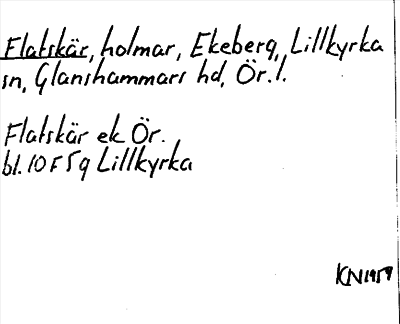 Flatskär, holmar, Ekeberg, Lillkyrka
sn, Glanshammars hd, Ör. l.
Flatskär ek Ör.
bl. 10 F 5g Lillkyrka
KN 1959